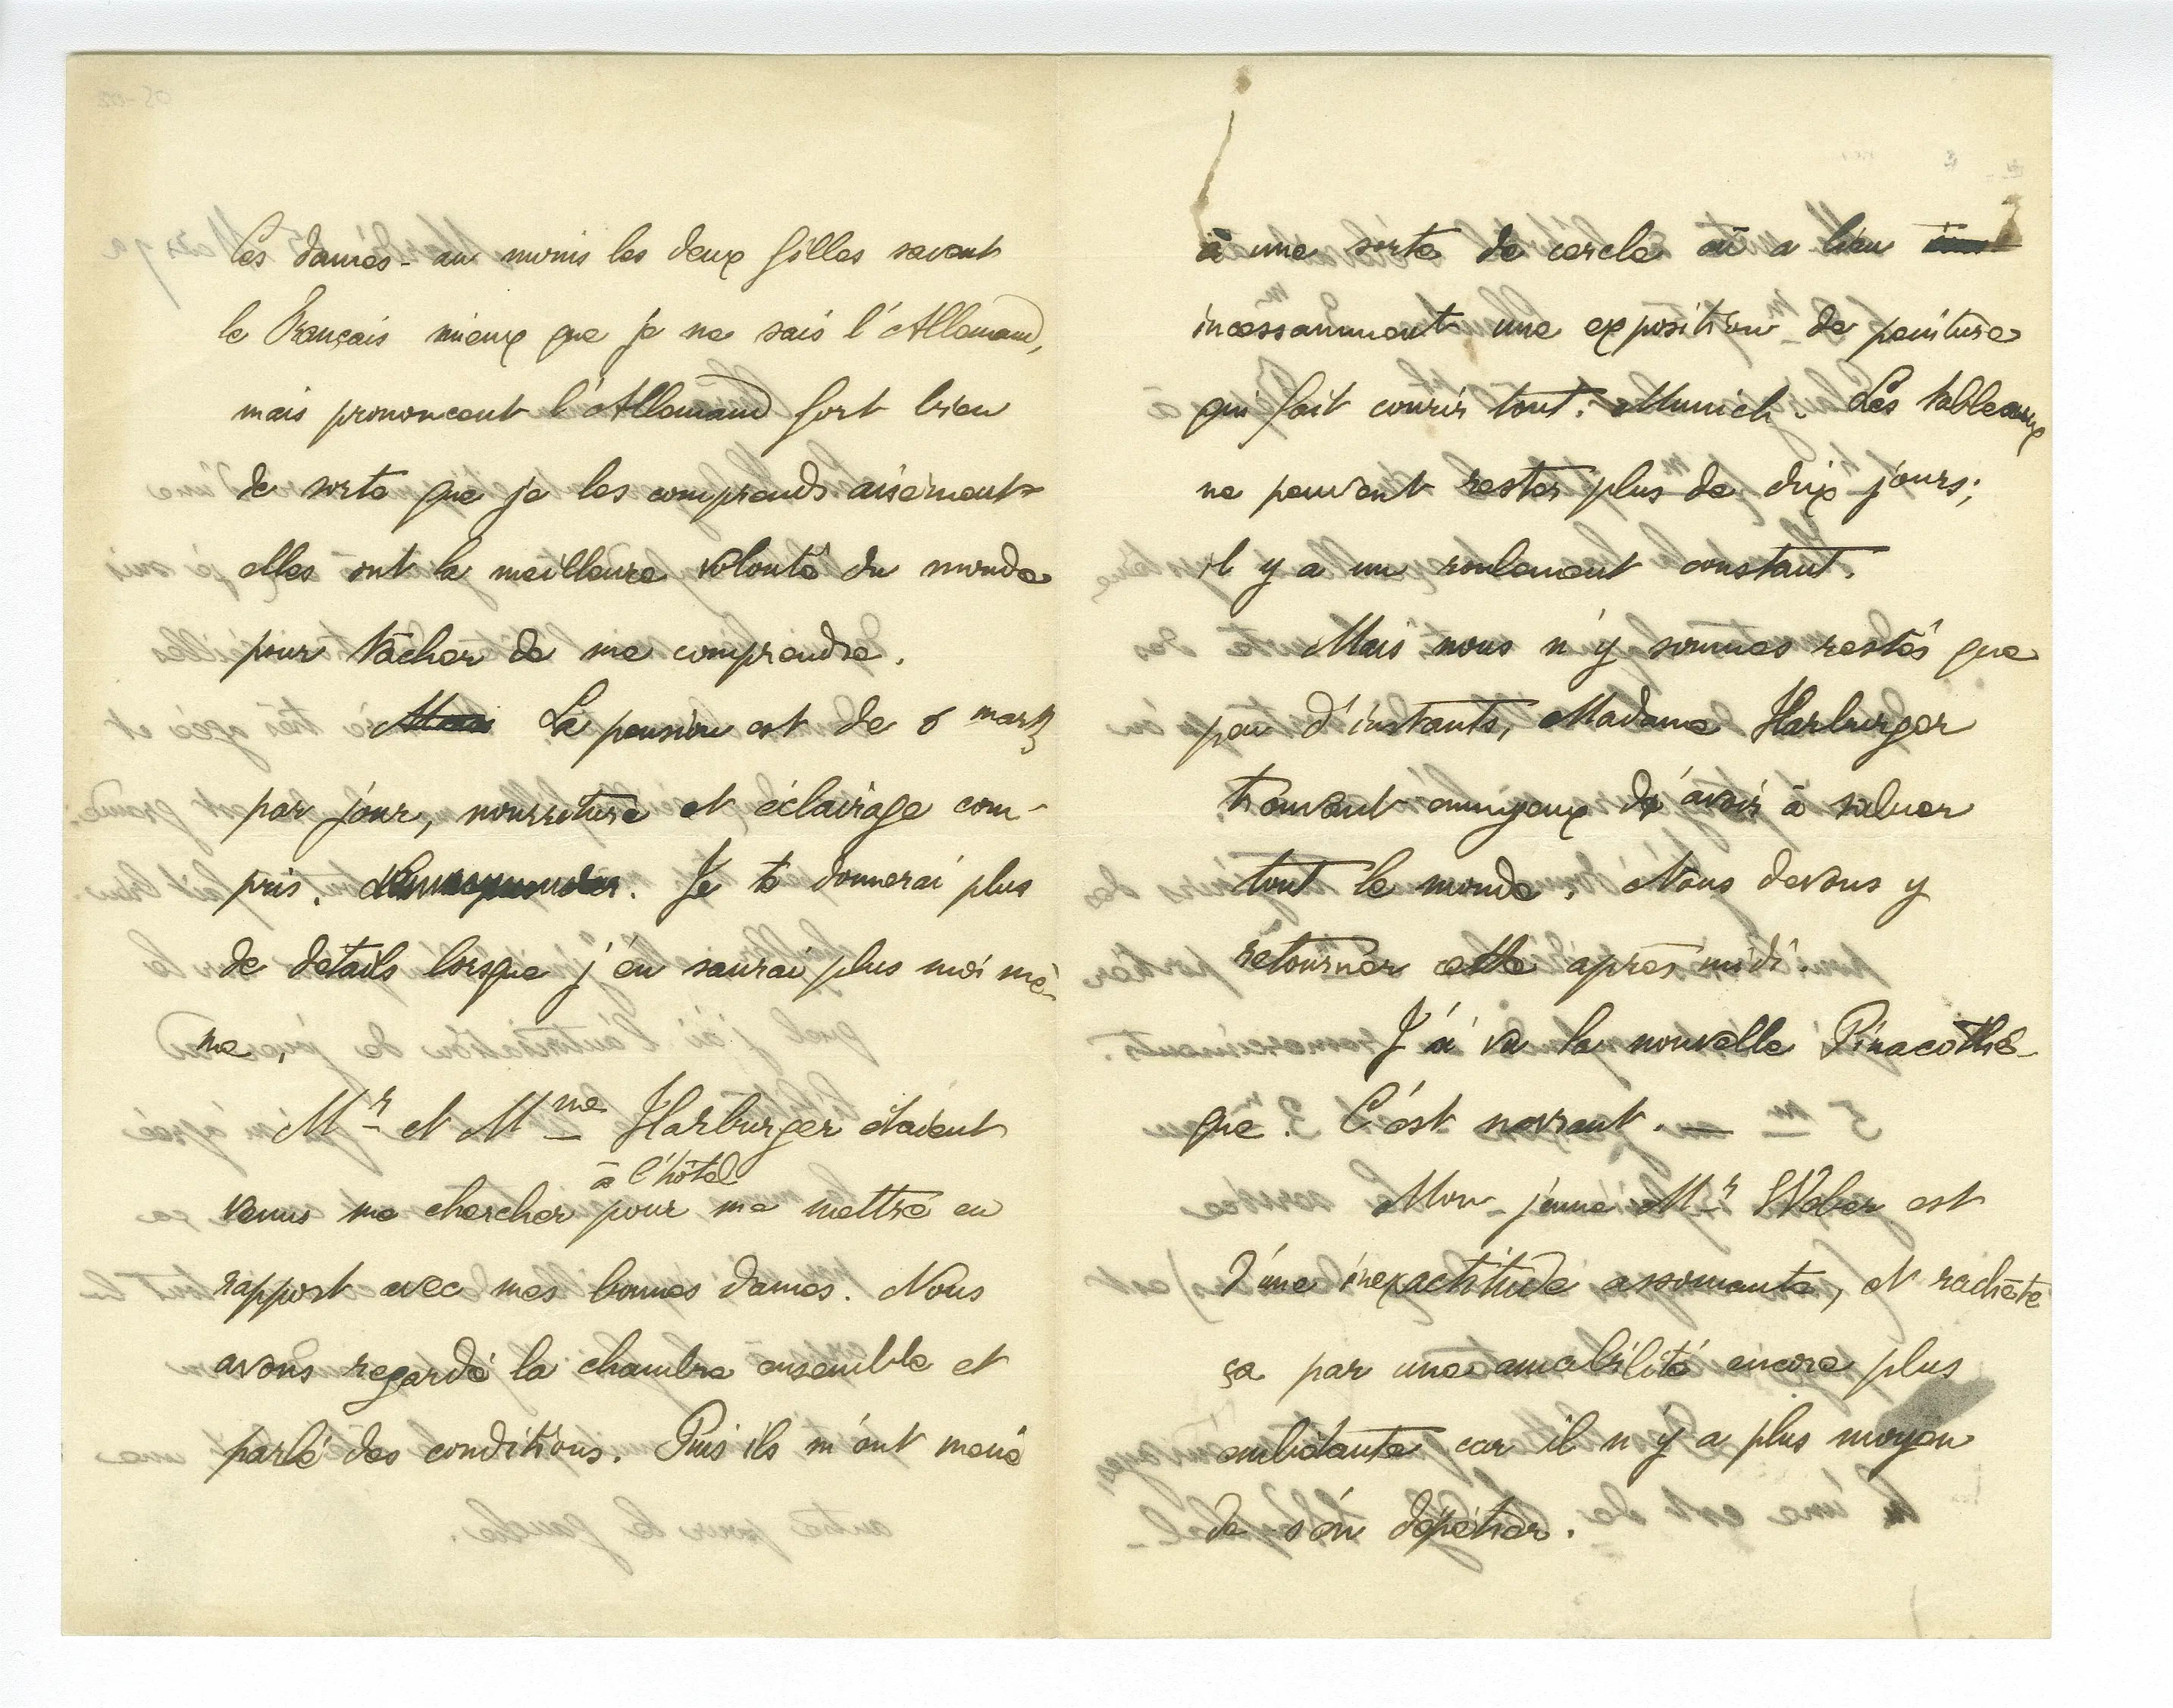 Ces dames - au moins les deux filles savent
le Français mieux que je ne sais l'Allemand,
mais prononcent l'Allemand fort bien
de sorte que je les comprends aisément
elles ont la meilleure volonté du monde
pour tâcher de me comprendre.
Mais La pension est de 5 marks
par jour, nourriture et éclairage com-
pris. Je te donnerai plus
de détails lorsque j'en saurai plus moi mê-
me.
Mr et Mme Harburger étaient
à l'hôtel
venus me chercher pour me mettre en
rapport avec mes bonnes dames. Nous
avons regardé la chambre ensemble et
parlé des conditions. Puis ils m'ont mené
à une sorte de cercle où a lieu
incessamment une exposition de peinture
qui fait courir tout Munich. Les tableaux
ne peuvent rester plus de dix jours;
il y a un roulement constant.
Mais nous n'y sommes restés que
peu d'instants, Madame Harburger
trouvant ennuyeux d'avoir à saluer
tout le monde. Nous devons y
retourner cette après midi.
J'ai vu la nouvelle Pinacothè-
que. C'est navrant. —
Mon jeune Mr Weber est
d'une inexactitude assomante, et rachète
ça par une amabilité encore plus
embêtante car il n'y a plus moyen
de s'en dépêtrer.